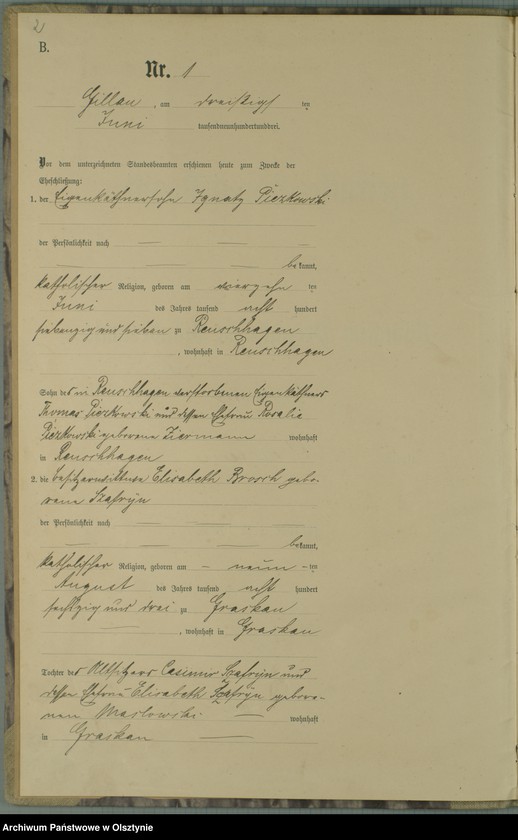 2
B.
Nr. 1
Gillau, am dreißigsten
Juni tausendneunhundertunddrei.
Vor dem unterzeichneten Standesbeamten erschienen heute zum Zwecke der
Eheschließung:
1. der Eigenkäthnersohn Ignatz Pieczkowski
der Persönlichkeit nach — — —
— — — bekannt,
katholischer Religion, geboren am vierzehnten
Juni des Jahres tausend acht hundert
siebenzig und sieben zu Reuschhagen
, wohnhaft in Reuschhagen
Sohn des in Reuschhagen verstorbenen Eigenkäthners
Thomas Pieczkowski und dessen Ehefrau Rosalie
Pieczkowski geborene Ziermann wohnhaft
in Reuschhagen
2. die Besitzerwittwe Elisabeth Brosch gebo-
rene Szafryn
der Persönlichkeit nach — — —
— — — bekannt,
katholischer Religion, geboren am — neun — ten
August des Jahres tausend acht hundert
sechszig und drei zu Graskau
, wohnhaft in Graskau
Tochter des Altsitzers Casimir Szafryn und
dessen Ehefrau Elisabeth Szafryn gebore-
nen Maslowski — wohnhaft
in Graskau —
Archiwum Państwowe w Olsztynie